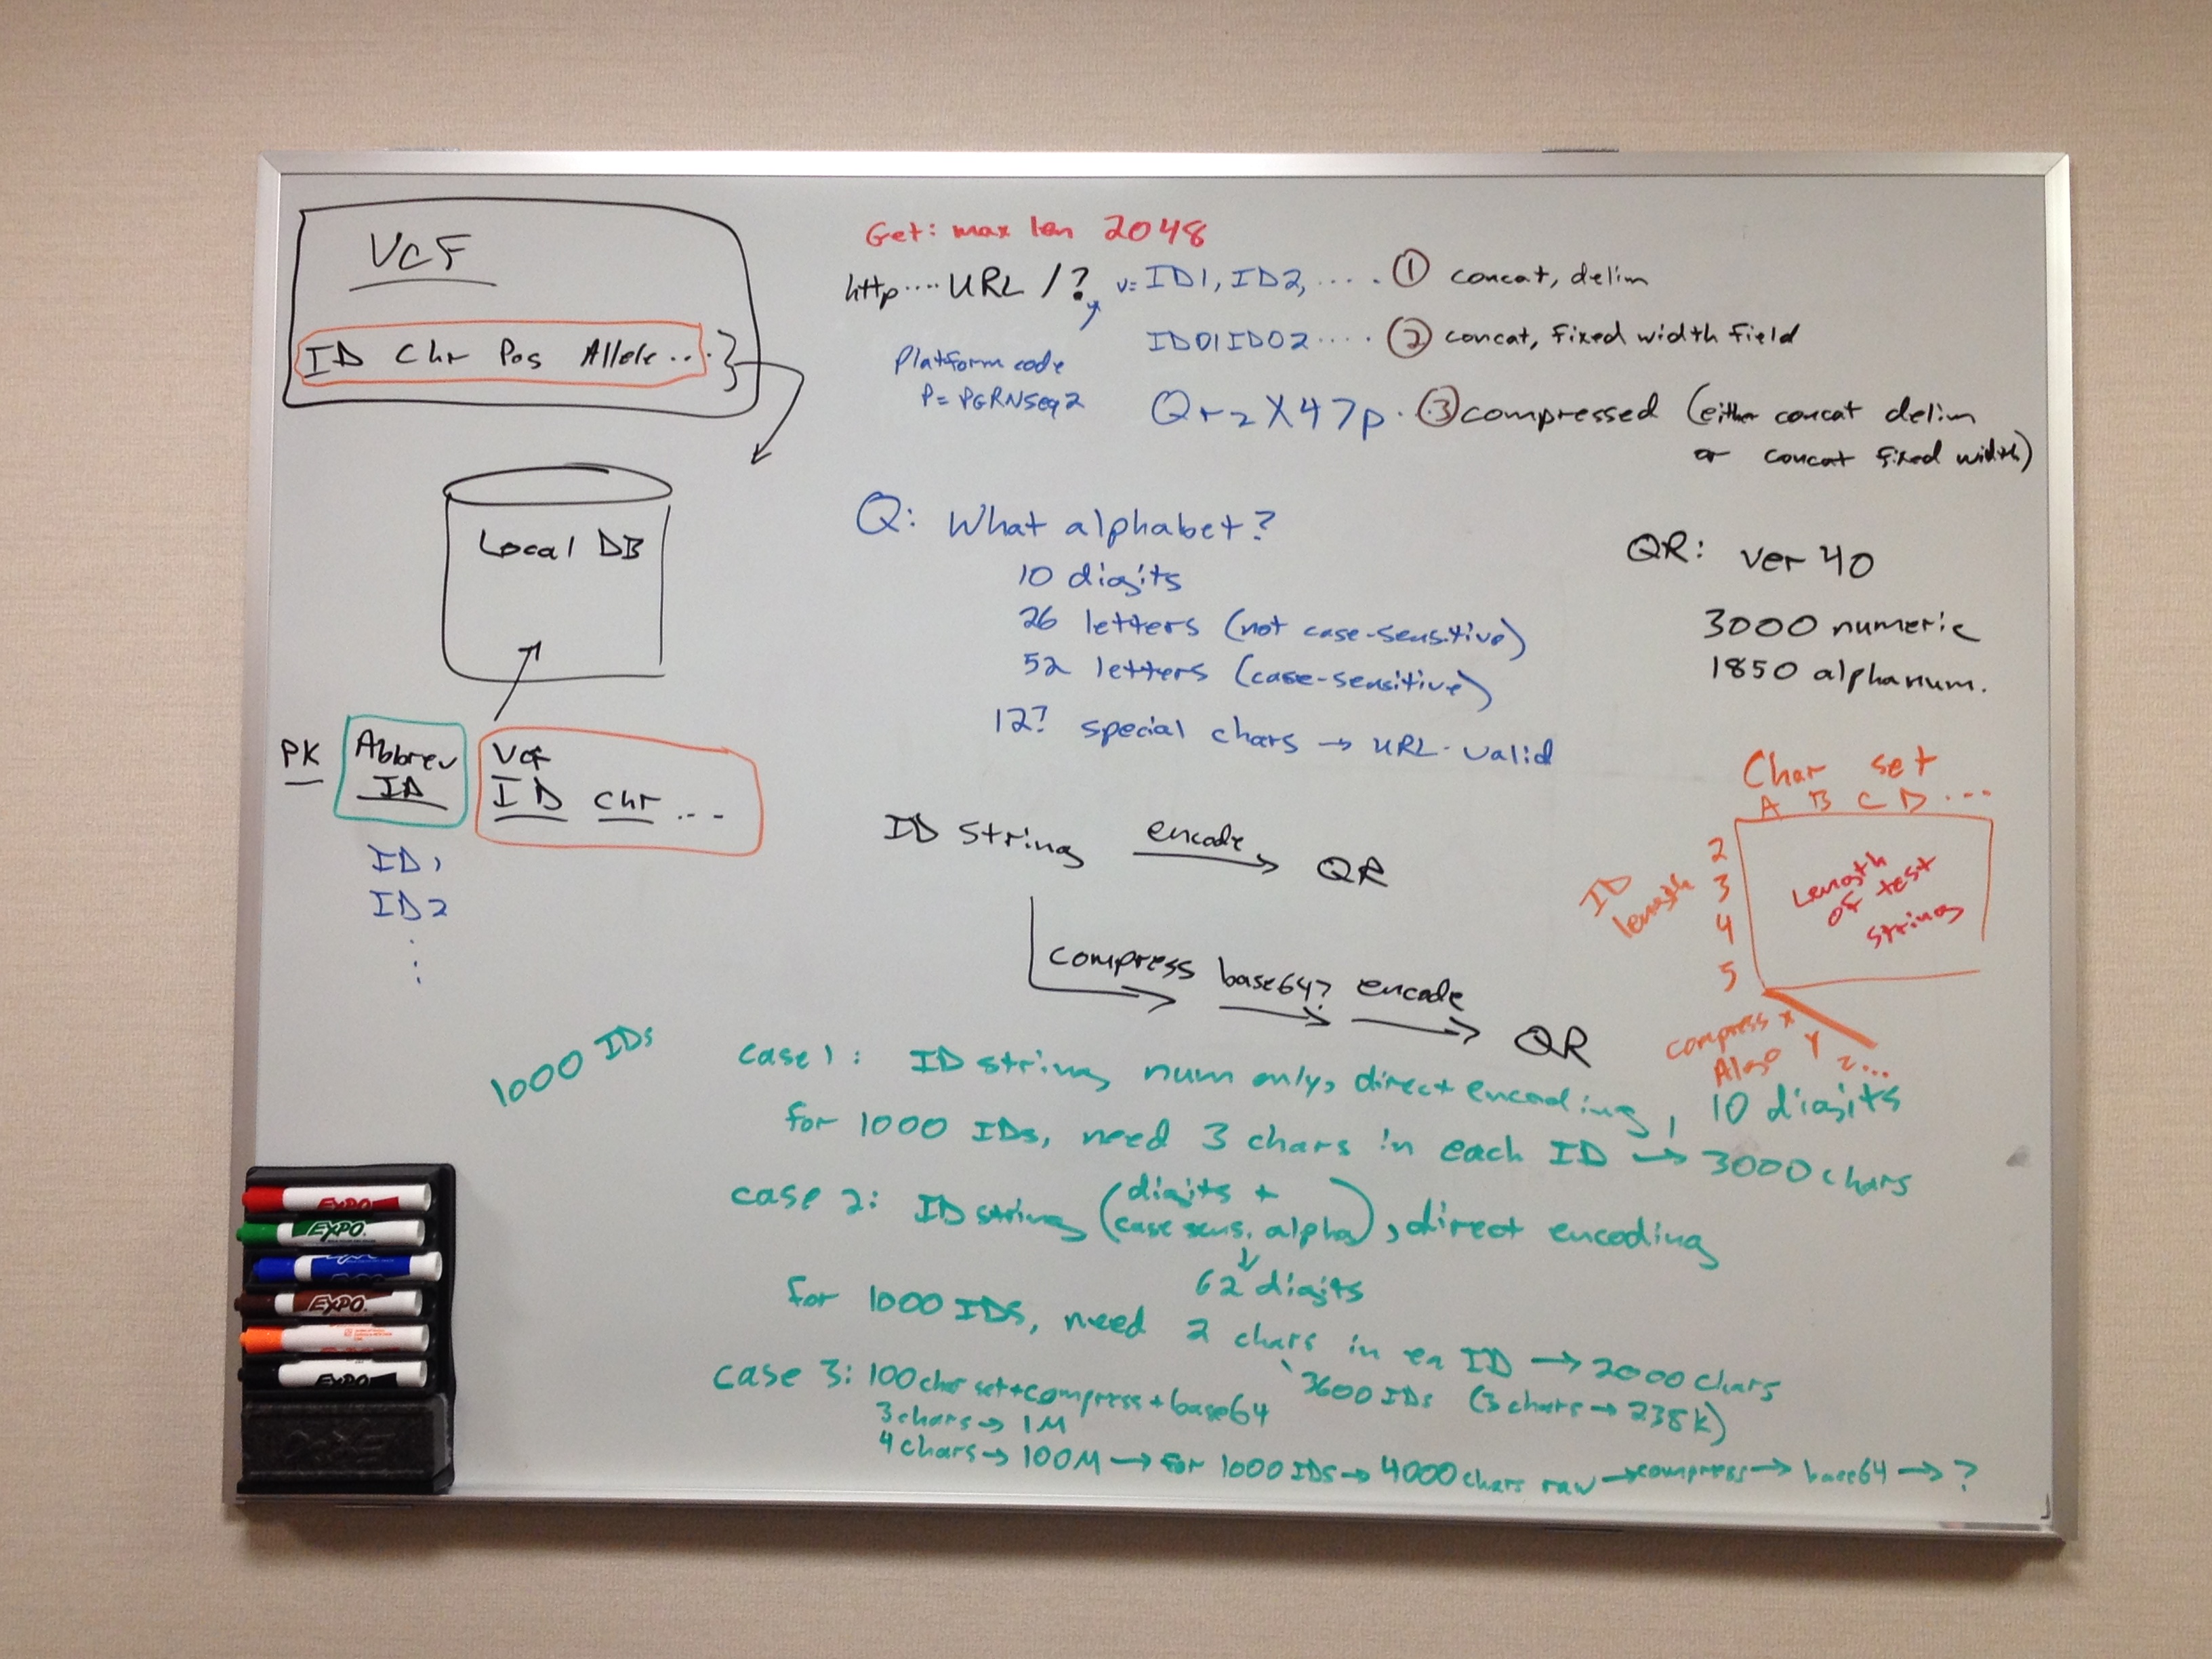 VCF
ID Chr Pos Allele...
Local DB
PK
Abbrev
ID
VCF
ID Chr ...
ID1
ID2
Get: max len 2048
http.... URL /? v= ID1, ID2, ..... ① concat, delim
ID01ID02 .... ② concat, fixed width field
Platform code
P= PGRNSeq2
Qr2X47p. . ③ compressed (either concat delim
or concat fixed width)
Q: What alphabet?
10 digits
26 letters (not case-sensitive)
52 letters (case-sensitive)
12? special chars → URL-valid
QR: ver 40
3000 numeric
1850 alphanum.
ID string encode → QR
compress base64? encode → QR
Char set
A B C D ...
ID length
2
3
4
5
Length
of test
strings
compress X
Algo Y
Z...
1000 IDs
case 1: ID string num only, direct encoding, 10 digits
for 1000 IDs, need 3 chars in each ID → 3000 chars
case 2: ID string (digits + case sens. alpha), direct encoding
↓
62 digits
for 1000 IDs, need 2 chars in ea ID → 2000 chars
3600 IDs (3 chars → 238k)
case 3: 100 char set + compress + base64
3 chars → 1M
4 chars → 100M → for 1000 IDs → 4000 chars raw → compress → base64 → ?
EXPO
EXPO
EXPO
EXPO